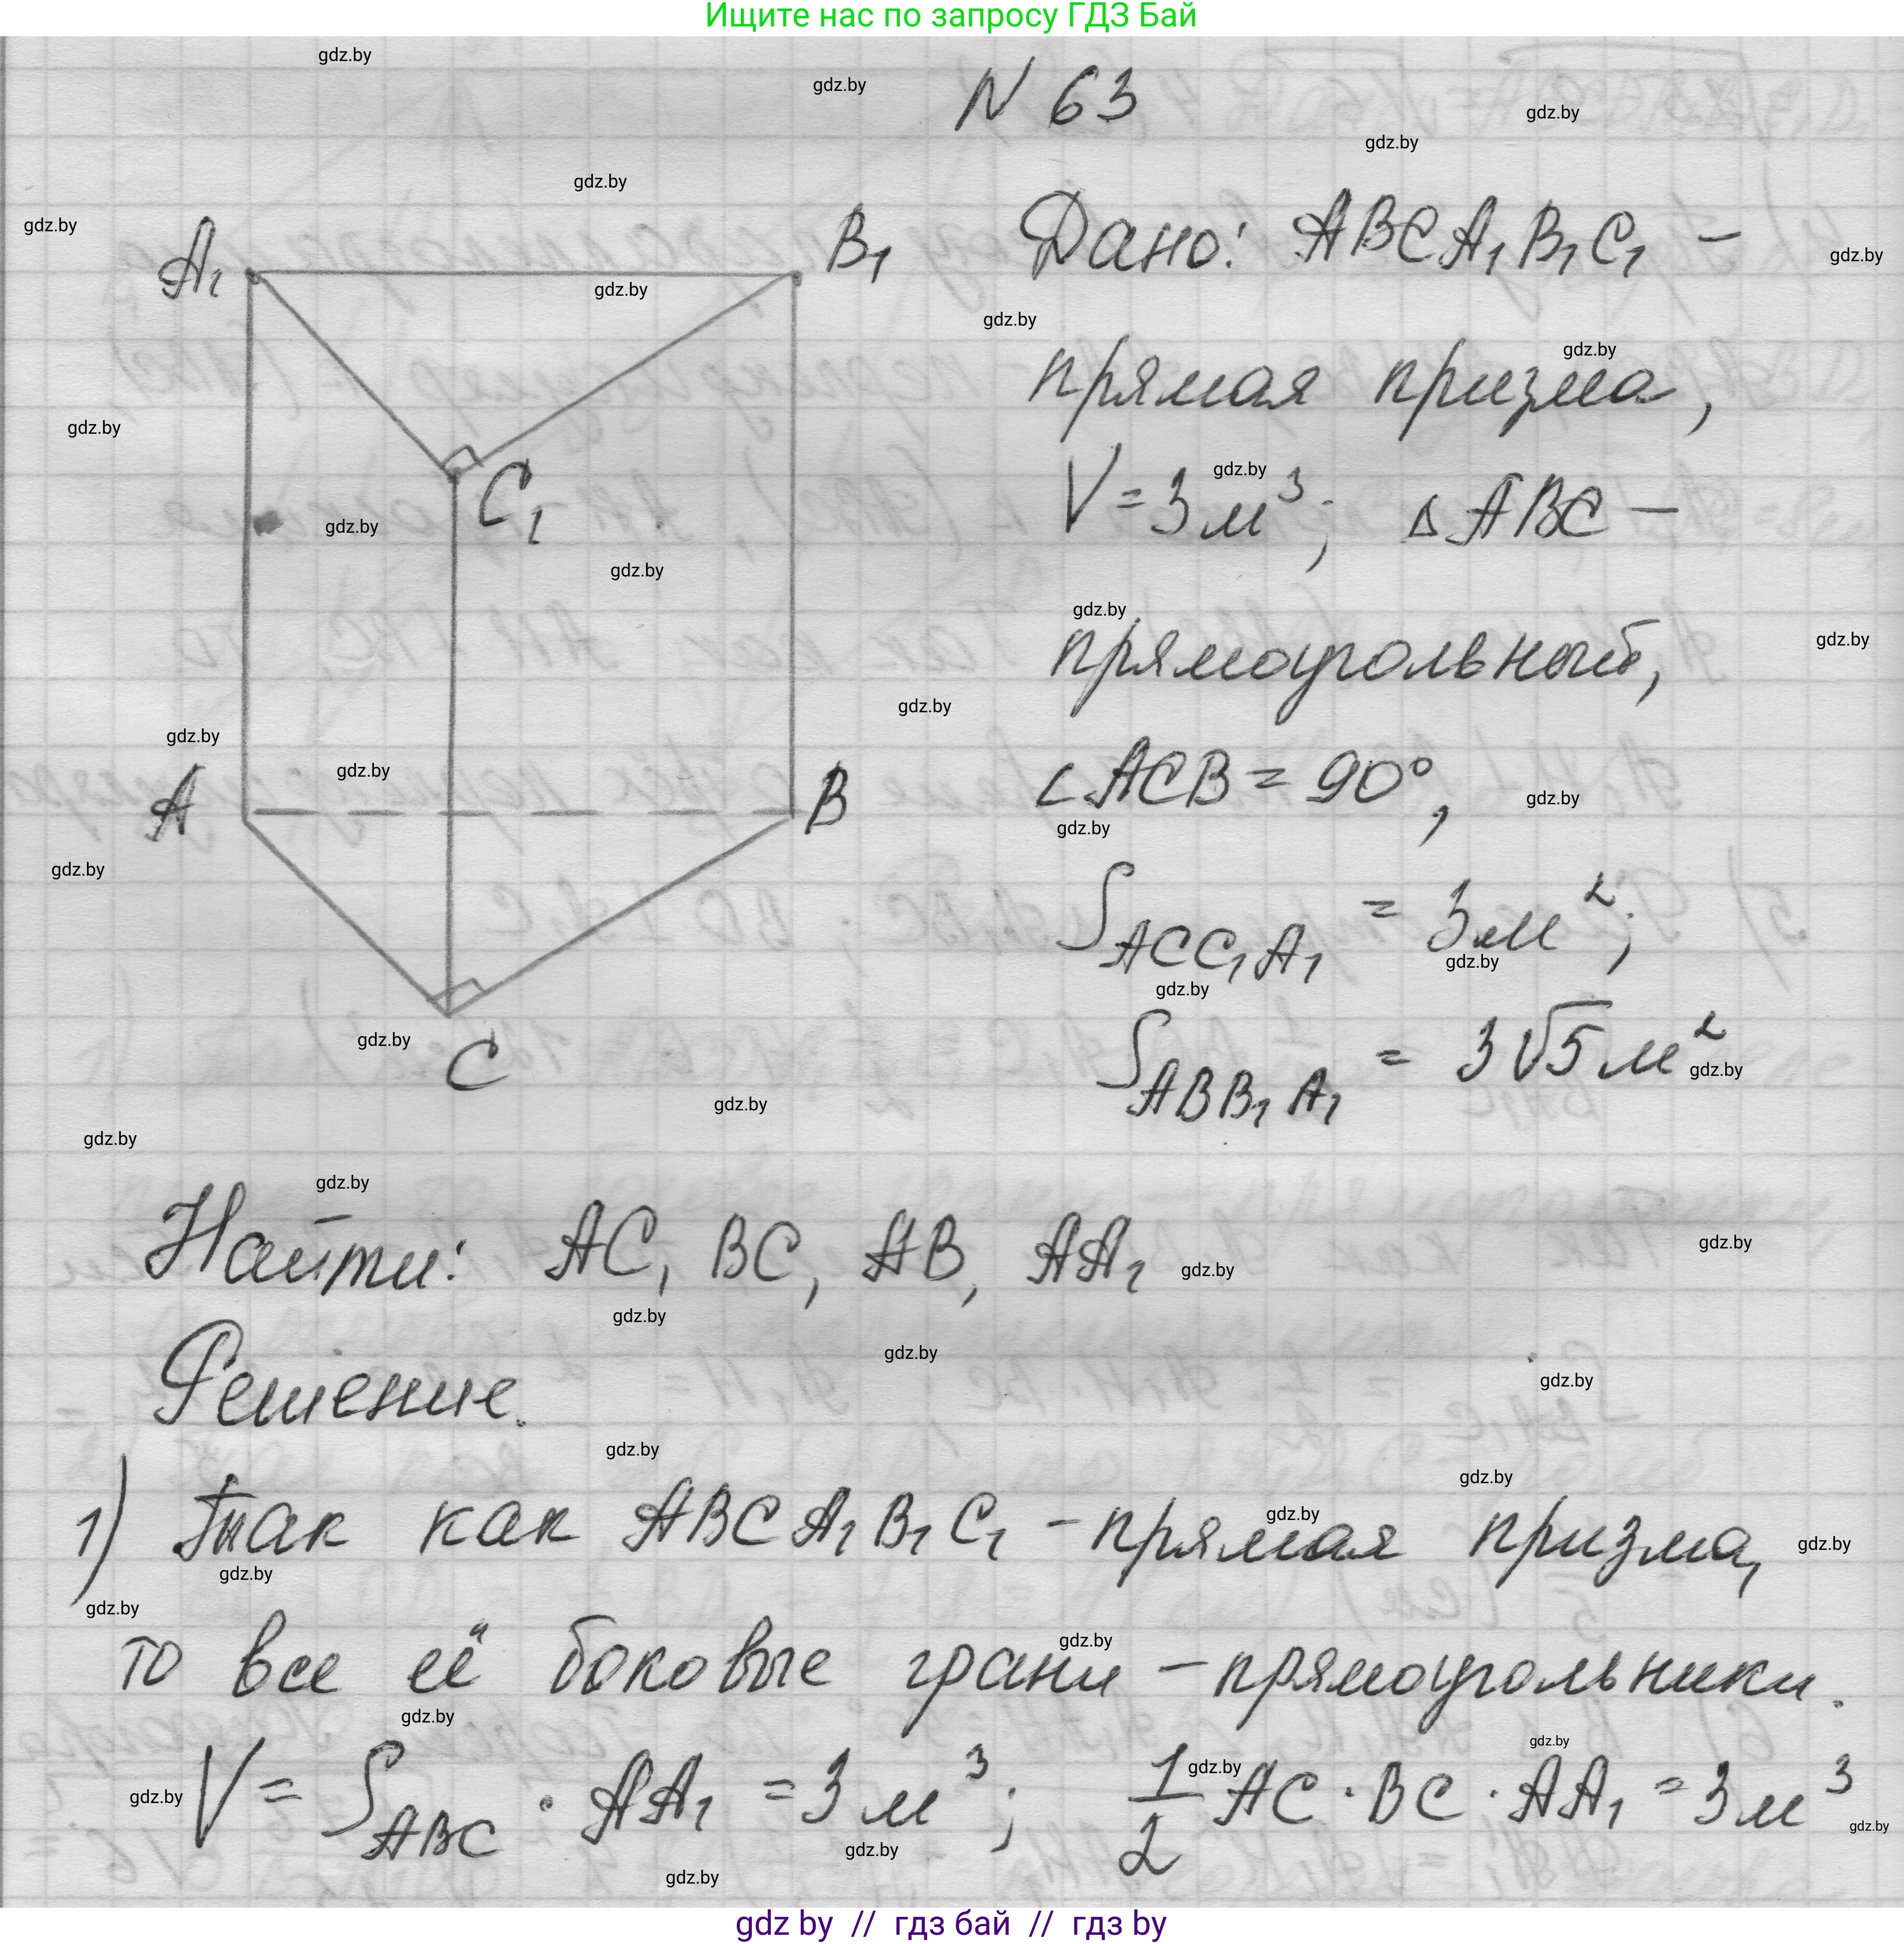 Ищите нас по запросу ГДЗ Бай
N 63
A₁ B₁ C₁ A B C
Дано: ABCA₁B₁C₁ –
прямая призма,
V = 3 м³; △ABC –
прямоугольный,
∠ACB = 90°,
S_ACC₁A₁ = 3 м²;
S_ABB₁A₁ = 3√5 м²
Найти: AC, BC, AB, AA₁
Решение.
1) Так как ABCA₁B₁C₁ – прямая призма,
то все её боковые грани – прямоугольники.
V = S_ABC · AA₁ = 3 м³; 1/2 AC · BC · AA₁ = 3 м³
gdz by // гдз бай // гдз by
gdz.by